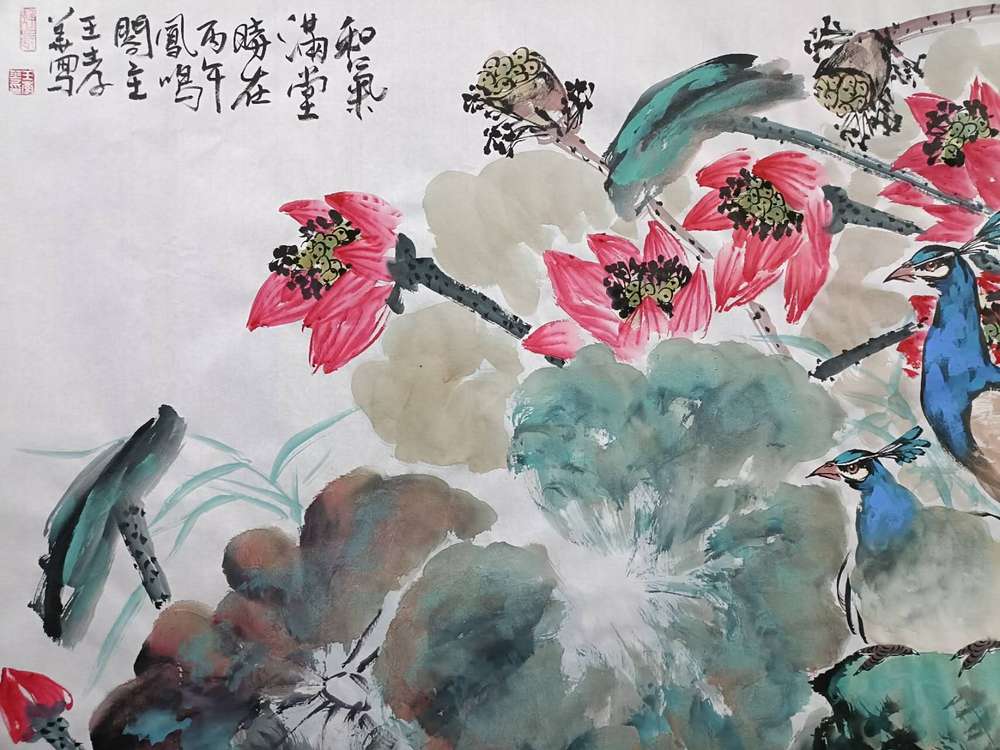 和氣
滿堂
時在
丙午
鳳鳴
閣主
王孝
華寫